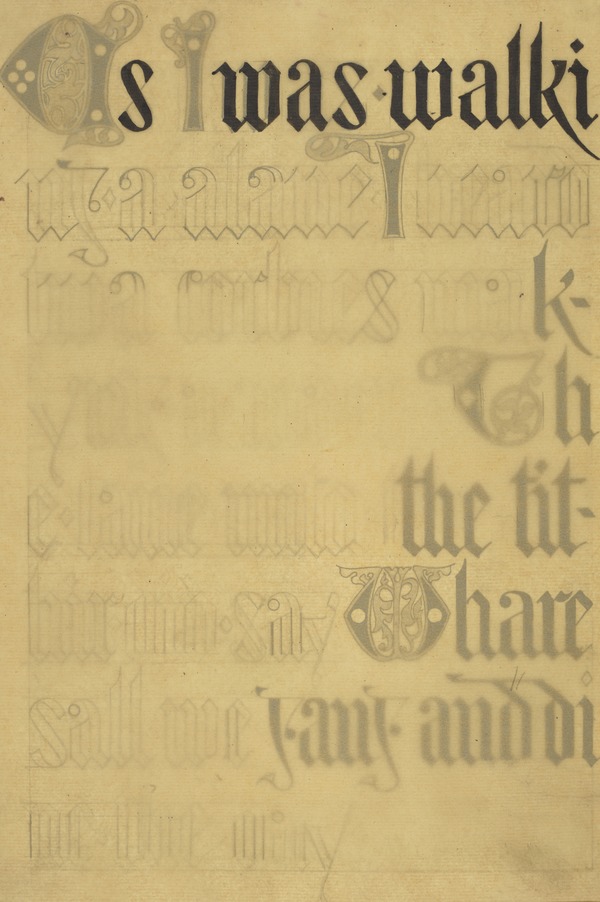 As I was·walki
ng·a·alane I heard
twa corbies mak-
Th
e·tane unto the tit-
hir say Whare
sall we gang and di
ne the day